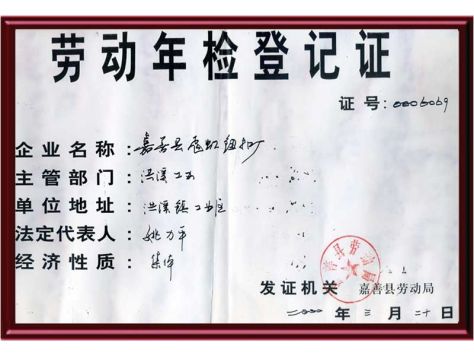 劳动年检登记证
证号:0005069
企业名称:嘉善县虹纽扣厂
主管部门:洪溪工办
单位地址:洪溪镇工业区
法定代表人:姚力平
经济性质:集体
发证机关 嘉善县劳动局
二000年三月二十日